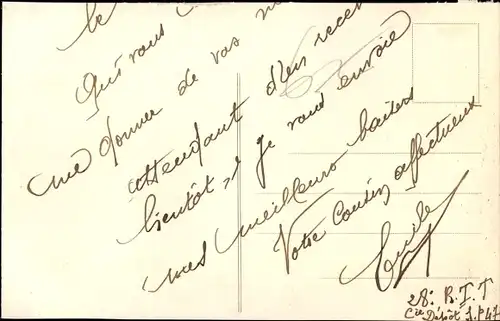 le
Qui vous
me donner de vos n
attendant d'en recev
bientôt, je vous envoie
mes meilleurs baisers
Votre Cousin affectueux
Emile
28e R.I.T
Cie Dépôt S.P 47